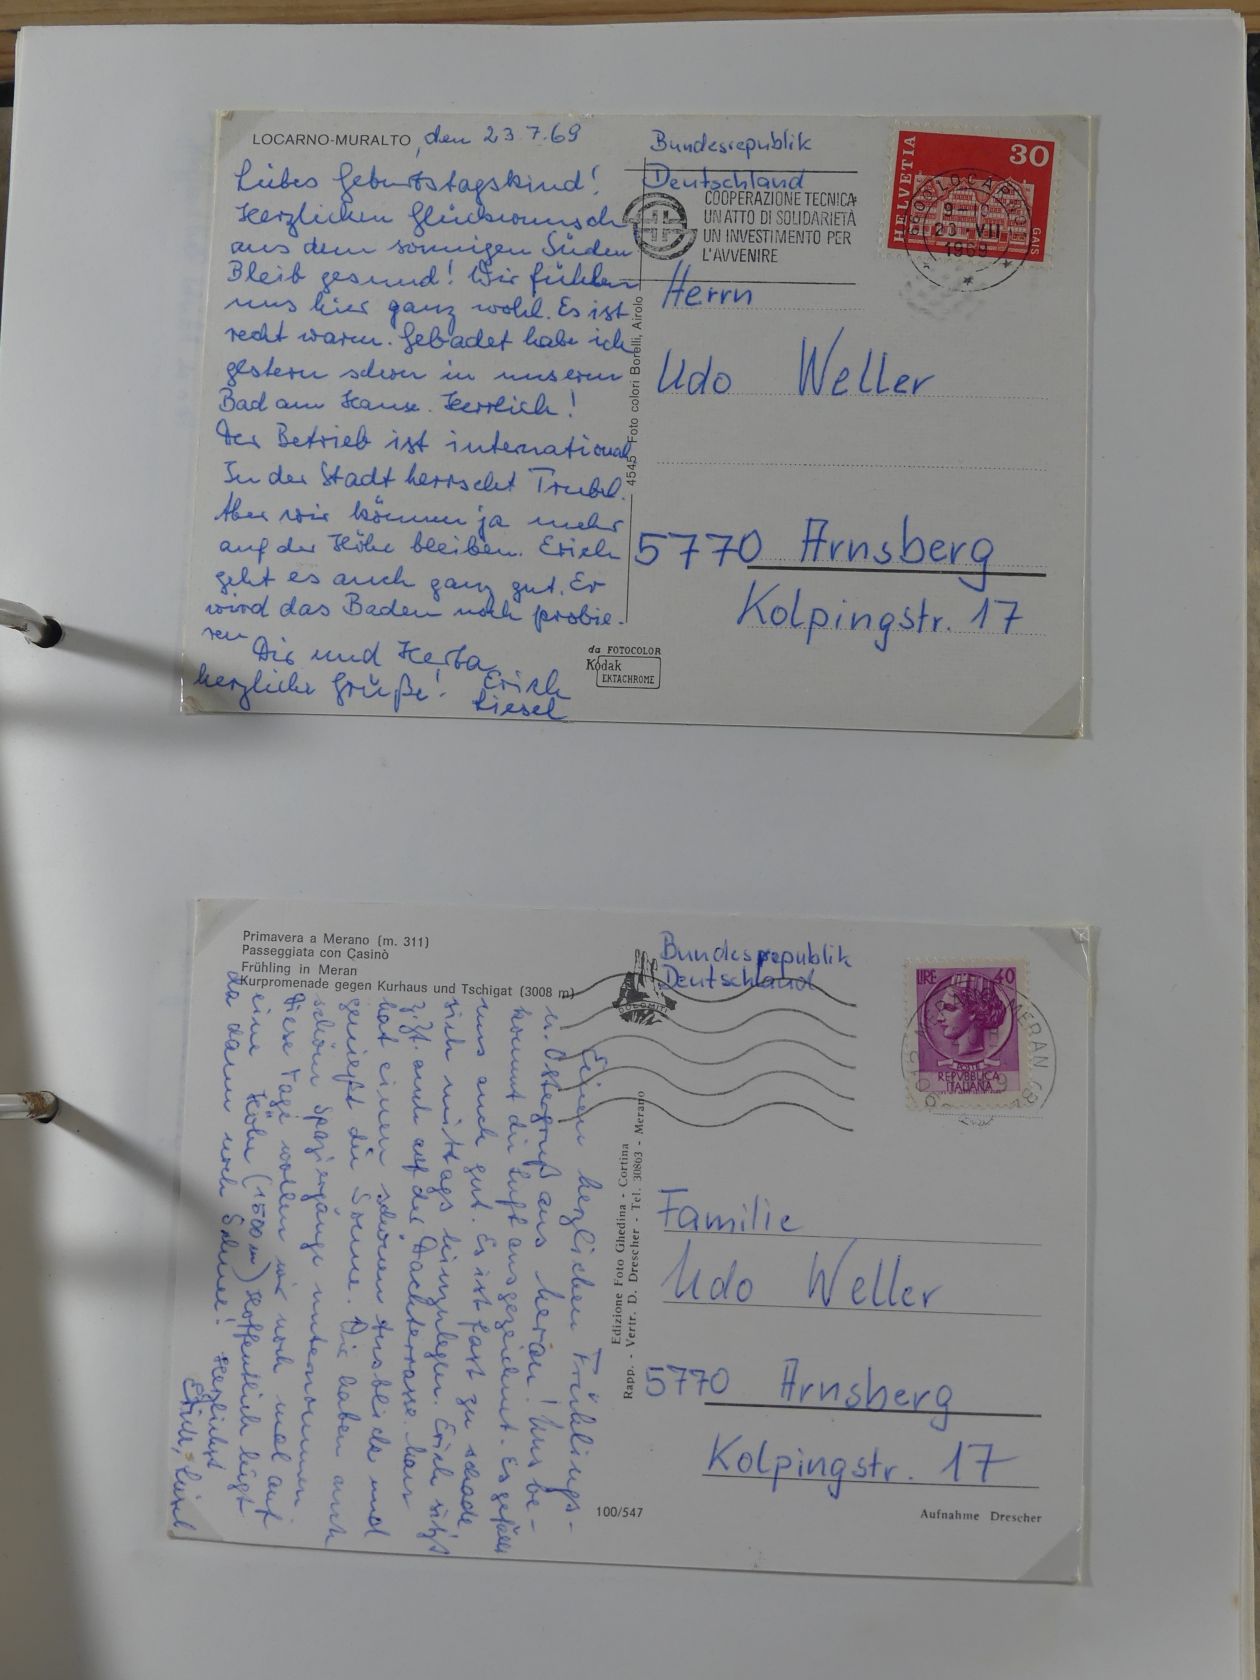 LOCARNO-MURALTO, den 23.7.69
Liebes Geburtstagskind!
Herzlichen Glückwunsch
aus dem sonnigen Süden
Bleib gesund! Wir fühlen
uns hier ganz wohl. Es ist
recht warm. Gebadet habe ich
gestern schon in unserem
Bad am Hause. Herrlich!
Der Betrieb ist international
In der Stadt herrscht Trubel.
Aber wir können ja mehr
auf der Höhe bleiben. Erich
geht es auch ganz gut. Er
wird das Baden noch probie-
ren
Dir und Herta
herzliche Grüße! Erich
Liesel
4545 Foto colori Borelli, Airolo
da FOTOCOLOR
Kodak
EKTACHROME
Bundesrepublik
Deutschland
COOPERAZIONE TECNICA
UN ATTO DI SOLIDARIETÀ
UN INVESTIMENTO PER
L'AVVENIRE
HELVETIA
30
GAIS
LOCARNO
VII
1969
Herrn
Udo Weller
5770 Arnsberg
Kolpingstr. 17
Primavera a Merano (m. 311)
Passeggiata con Casinò
Frühling in Meran
Kurpromenade gegen Kurhaus und Tschigat (3008 m)
Einen herzlichen Frühlings-
u. Ostergruß aus Meran! Uns be-
kommt die Luft ausgezeichnet. Es gefällt
uns auch gut. Es ist fast zu schade,
sich mittags hinzulegen. Erich sitzt
z.Zt. auch auf der Dachterrasse. Man
hat einen schönen Ausblick und
genießt die Sonne. Wir haben auch
schöne Spaziergänge unternommen.
Diese Tage wollen wir noch mal auf
eine Höhe (1500 m) Hoffentlich liegt
da dann noch Schnee! Herzlichst
Erich, Liesel
DOLOMITI
Edizione Foto Ghedina - Cortina
Rapp. - Vertr. D. Drescher - Tel. 30803 - Merano
100/547
Bundesrepublik
Deutschland
LIRE 40
POSTE
REPVBBLICA
ITALIANA
MERANO MERAN
Familie
Udo Weller
5770 Arnsberg
Kolpingstr. 17
Aufnahme Drescher